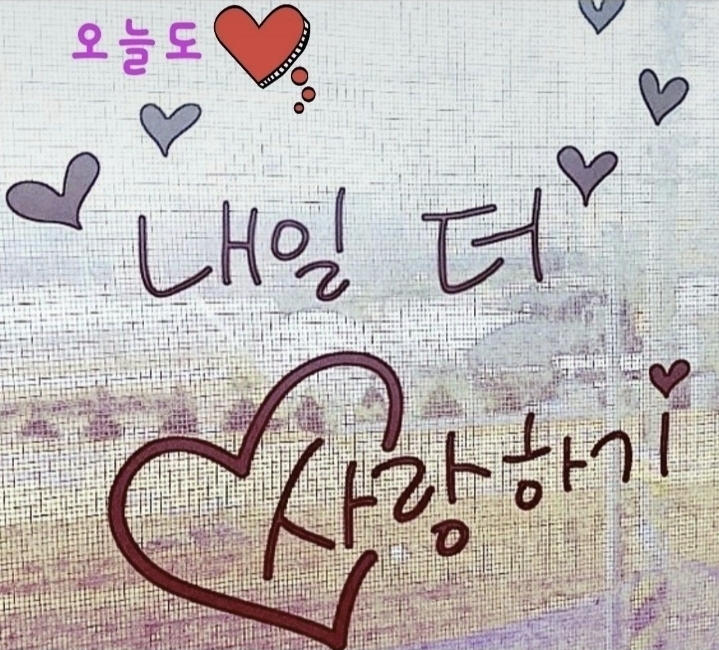 오늘도
내일 더
사랑하기